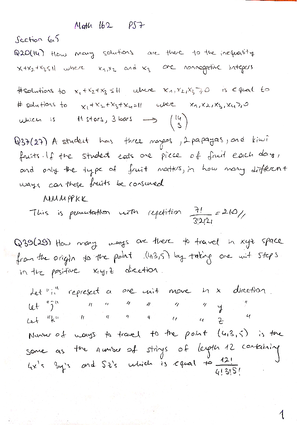 Math 162 PS7
Section 6.5
Q20(14) How many solutions are there to the inequality
x₁+x₂+x₃≤11 where x₁,x₂ and x₃ are nonnegative integers
#solutions to x₁+x₂+x₃≤11 where x₁,x₂,x₃≥0 is equal to
# solutions to x₁+x₂+x₃+x₄=11 where x₁,x₂,x₃,x₄≥0
which is 11 stars, 3 bars → (14 3)
Q37(27) A student has three mangos, 2 papayas, and kiwi
fruits. If the student eats one piece of fruit each day,
and only the type of fruit matters, in how many different
ways can these fruits be consumed
MMMPPKK
This is permutation with repetition 7!/3!2!2! = 210//
Q39(29) How many ways are there to travel in xyz space
from the origin to the point (4,3,5) by taking one unit steps
in the positive x,y,z direction.
Let "i" represent a one unit move in x direction
Let "j" " " " " " " y "
Let "k" " " " " " " z "
Number of ways to travel to the point (4,3,5) is the
same as the number of strings of length 12 containing
4x's 3y's and 5z's which is equal to 12!/4!3!5!
1